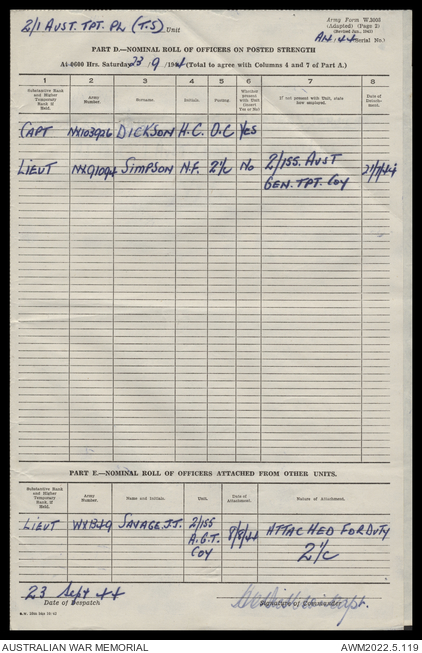 2/1 AUST. TPT. PL (T.S) Unit
Army Form W.3008
(Adapted) (Page 2)
(Revised Jan., 1943)
(Serial No.)
PART D.—NOMINAL ROLL OF OFFICERS ON POSTED STRENGTH
At 0600 Hrs. Saturday 23 / 9 / 1944 (Total to agree with Columns 4 and 7 of Part A.)
1 2 3 4 5 6 7 8
Substantive Rank and Higher Temporary Rank if Held.
Army Number.
Surname.
Initials.
Posting.
Whether present with Unit (Insert Yes or No)
If not present with Unit, state how employed.
Date of Detachment.
CAPT NX103926 DICKSON H.C. O.C YES
LIEUT SIMPSON N.F. 2I/C NO 2/155. AUST
GEN. TPT. COY
PART E.—NOMINAL ROLL OF OFFICERS ATTACHED FROM OTHER UNITS.
Substantive Rank and Higher Temporary Rank if Held.
Army Number.
Name and Initials.
Unit.
Date of Attachment.
Nature of Attachment.
LIEUT SAVAGE J.J. 2/155 A.G.T. COY 8/8/44 ATTACHED FOR DUTY
2I/C
23 Sept 44
Date of Despatch
Signature of Commander
Capt.
AUSTRALIAN WAR MEMORIAL
AWM2022.5.119